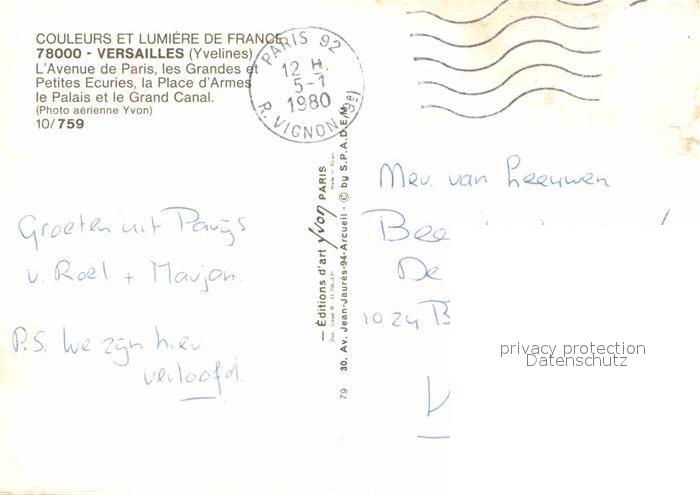 COULEURS ET LUMIÈRE DE FRANCE
78000 - VERSAILLES (Yvelines)
L'Avenue de Paris, les Grandes et
Petites Ecuries, la Place d'Armes
le Palais et le Grand Canal.
(Photo aérienne Yvon)
10/759
PARIS 92
12 H.
5-1
1980
R. VIGNON (8e)
Groeten uit Parijs
v. Roel + Marjan.
P.S. We zijn hier
verloofd.
— Éditions d'art yvon PARIS
79 30. Av. Jean-Jaurès-94-Arcueil - © by S.P.A.D.E.M.
Mev. van Leeuwen
Bee
De
1024 B
privacy protection
Datenschutz